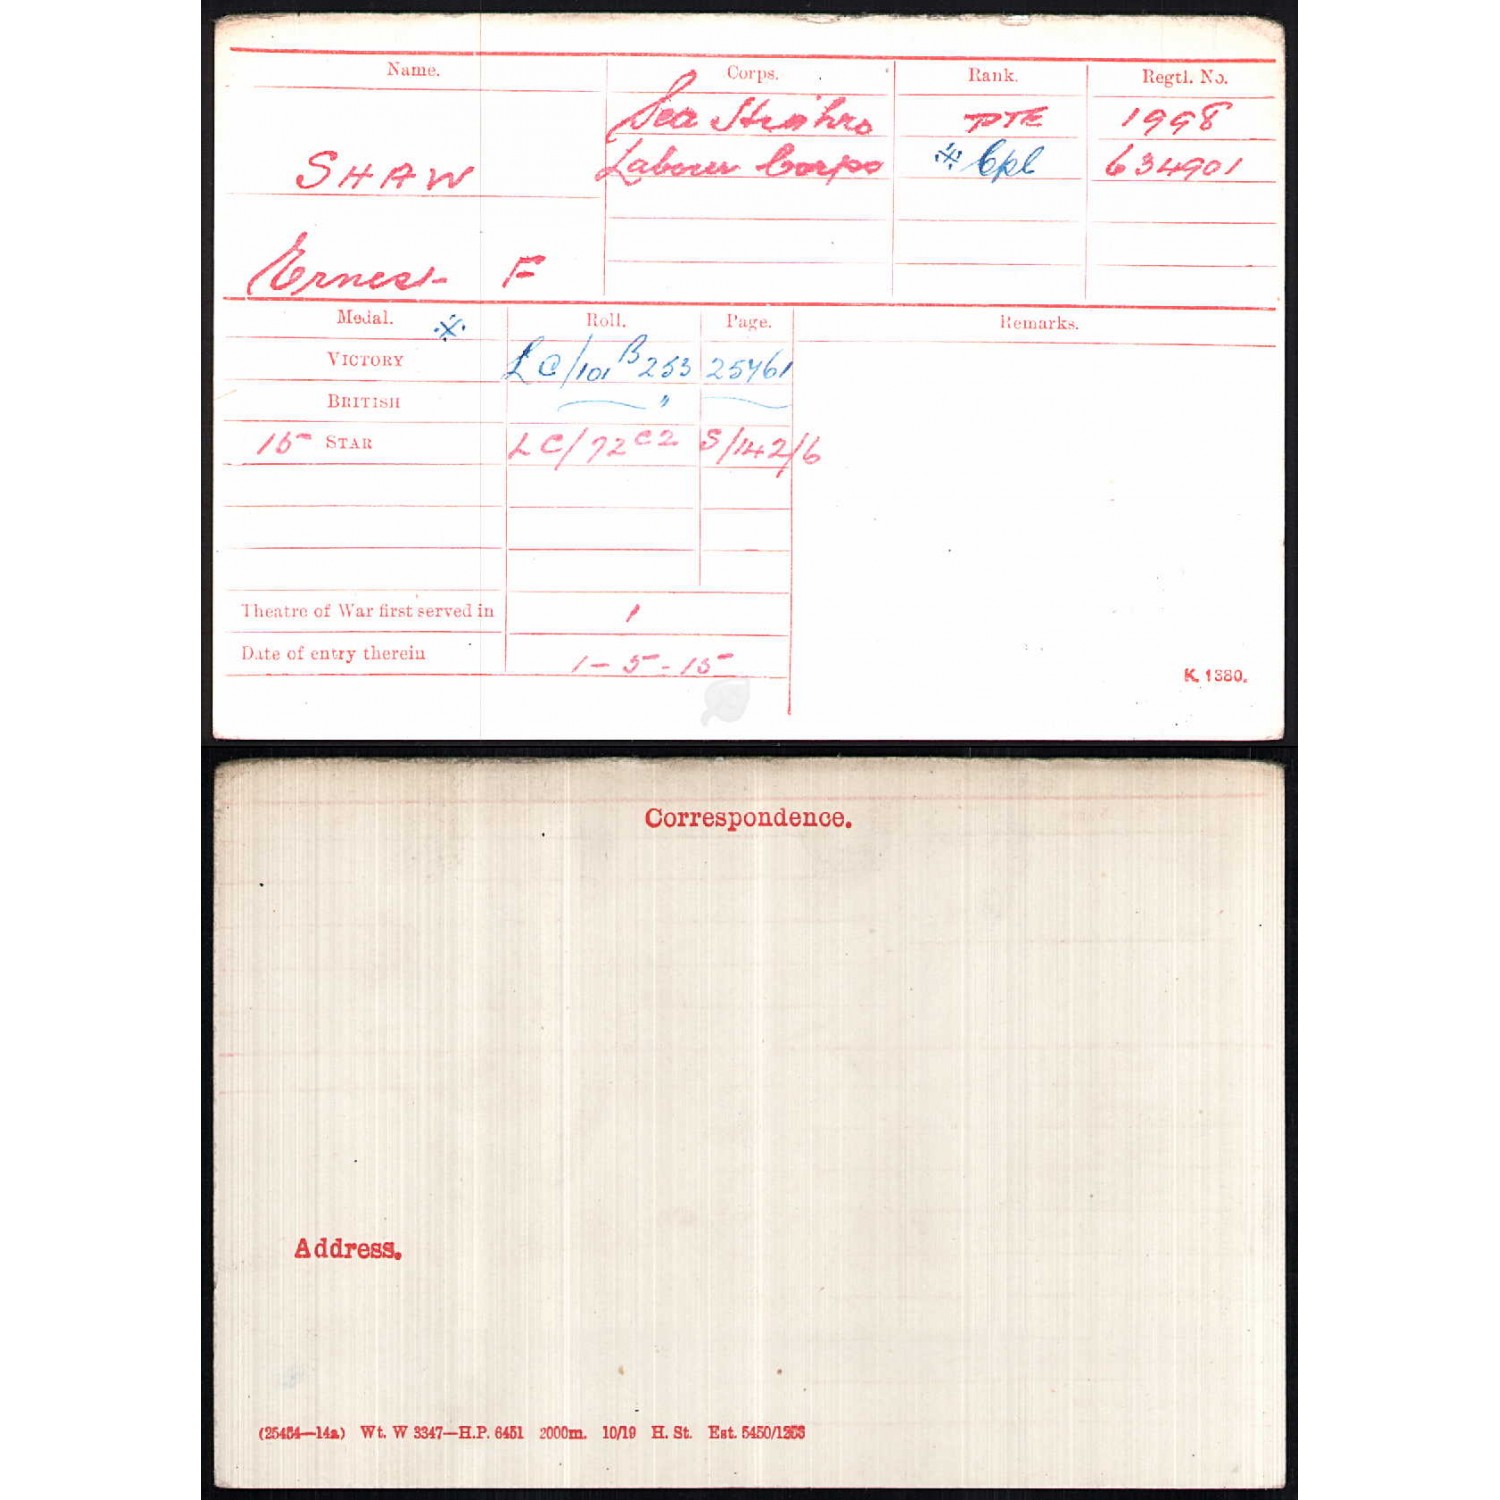 Name. Corps. Rank. Regtl. No.
Sea Highrs PTE 1998
SHAW Labour Corps ※ Cpl 634901
Ernest F
Medal. ※ Roll. Page. Remarks.
VICTORY LC/101 B 253 25461
BRITISH "
15 STAR LC/72 C2 S/142/6
Theatre of War first served in 1
Date of entry therein 1-5-15
K. 1380.
Correspondence.
Address.
(25454—14a) Wt. W 3347—H.P. 6451 2000m. 10/19 H. St. Est. 5450/1253